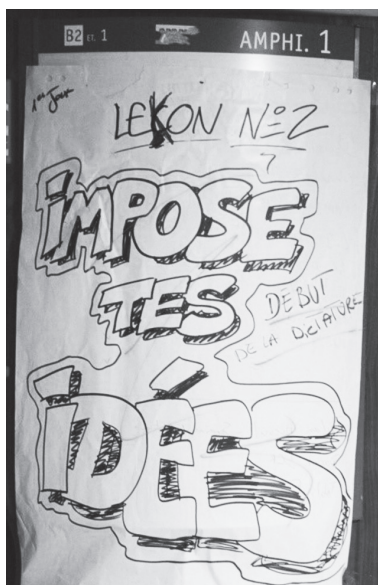 B2 ET. 1
AMPHI. 1
1er Jour
LEKON Nº2
IMPOSE
TES
DEBUT
DE LA DICTATURE
IDÉES